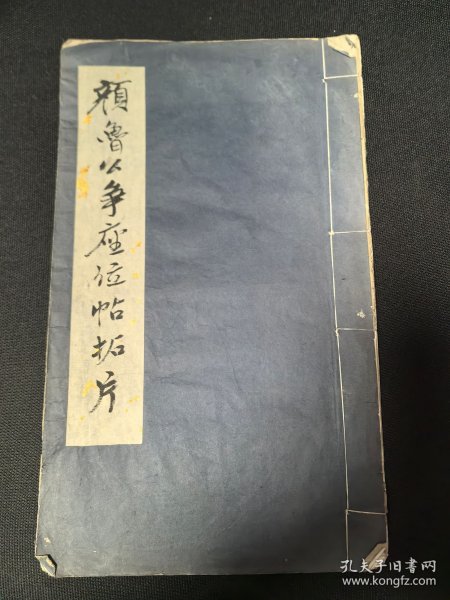 顔魯公争座位帖拓片
孔夫子旧书网
www.kongfz.com